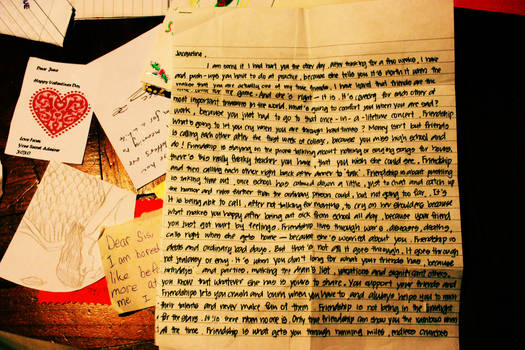 Dear Jane
Happy Valentines Day
Love From
Your Secret Admirer
XOXO
Dear Sis
I am bored
like bef
more at
me a I
Jacqueline,
I am sorry if I had hurt you the other day. After thinking for a two weeks, I have
and push-ups you have to do at practice, because she tells you it's worth it when the
realize that you are actually one of my true friends. I have learnt that friends are the
And she's right - it is. It's caring for each other at
most important treasures in the world. What's going to comfort you when you are sad?
work, because you just had to go to that once-in-a-lifetime concert. Friendship
What's going to let you cry when you are through hard times? Money isn't but friends
is calling each other after the first week of college, because you miss high school and
do! Friendship is staying on the phone talking about nothing or singing songs for hours,
there's this really geeky teacher you have, that you wish she could see. Friendship
and then calling each other right back after dinner to "talk". Friendship is about
is taking time out, once school has calmed down a little, just to chat and catch up
the humor and ruder darker than the ordinary person could, but not going too far. It
is being able to call, after not talking for months, to cry on her shoulder because
what makes you happy after being out sick from school all day, because your friend
you just got hurt by feelings. Friendship lives through war's, divorces, deaths,
calls right when she gets home - because she's worried about you. Friendship is
deaths and ordinary bad days. But that's not all it goes through. It goes through
not jealousy or envy. It's when you don't long for what your friends have, because
birthdays and parties, making the dean's list, vacations and significant others.
you know that whatever she has is yours to share. You support your friends and
Friendships lets you crash and burn when you have to and always helps you to meet
their talents and never make fun of them. Friendship is not being in the limelight
for the stars. It is there when no one is. Only true friendship can show you the rainbows when
all the time. Friendship is what gets you through running miles, endless crunches